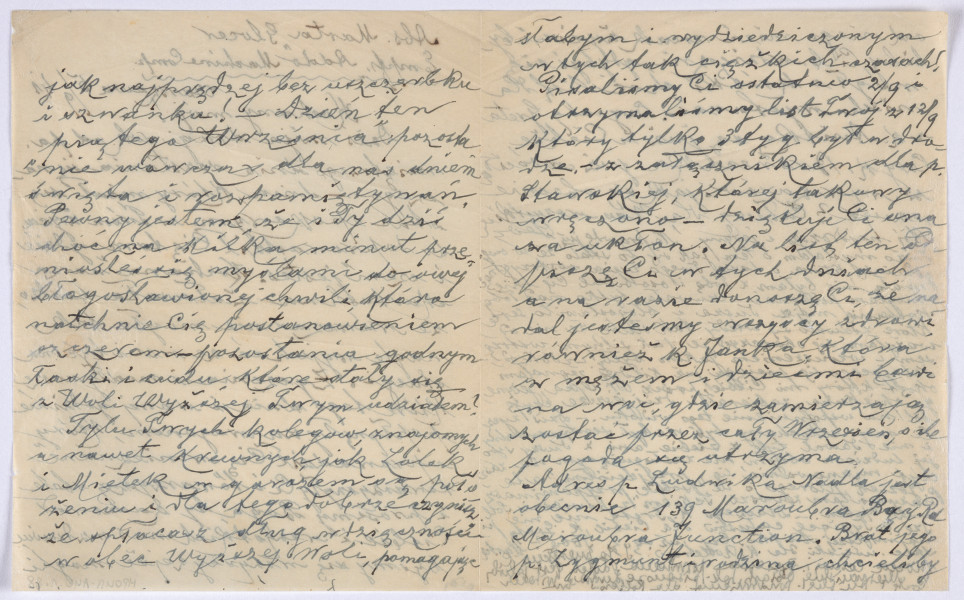 jak najprędzej bez uszczerbku
i szwanku! – Dzień ten
piątego Września pozosta
nie wówczas dla nas dniem
święta i rozpamiętywań.
Pewny jestem że i Ty dziś
choć na kilka minut prze-
niosłeś się myślami do owej
błogosławionej chwili, która
natchnie Cię postanowieniem
szczerem – pozostania godnym
Łaski i cudu które stały się
z Woli Wyższej Twym udziałem!
Tylu Twych kolegów, znajomych
a nawet krewnych jak Lolek
i Mietek w gorszem są poło
żeniu i dlatego dobrze czynisz
że spłacasz dług wdzięczności
wobec Wyższej Woli, pomagając
słabym i wydziedziczonym
w tych tak ciężkich czasach!
Pisaliśmy Ci ostatnio 2/9 i
otrzymaliśmy list Twój z 12/8
który tylko 3 tyg był w dro
dze – z załącznikiem dla p.
Stawskiej, której takowy
wręczono – dziękuje Ci ona
za ukłon. Na list ten o
piszę Ci w tych dniach
a na razie donoszę Ci, że na
dal jesteśmy wszyscy zdrowi
również k. Janka, która
z mężem i dziećmi bawi
na wsi, gdzie zamierzają
zostać przez cały Wrzesień, o ile
pogoda się utrzyma.
Adres p. Ludwika Nadla jest
obecnie 139 Maroubra Bay Rd
Maroubra Junction. Brat jego
p. Zygmunt i rodzina chcieliby